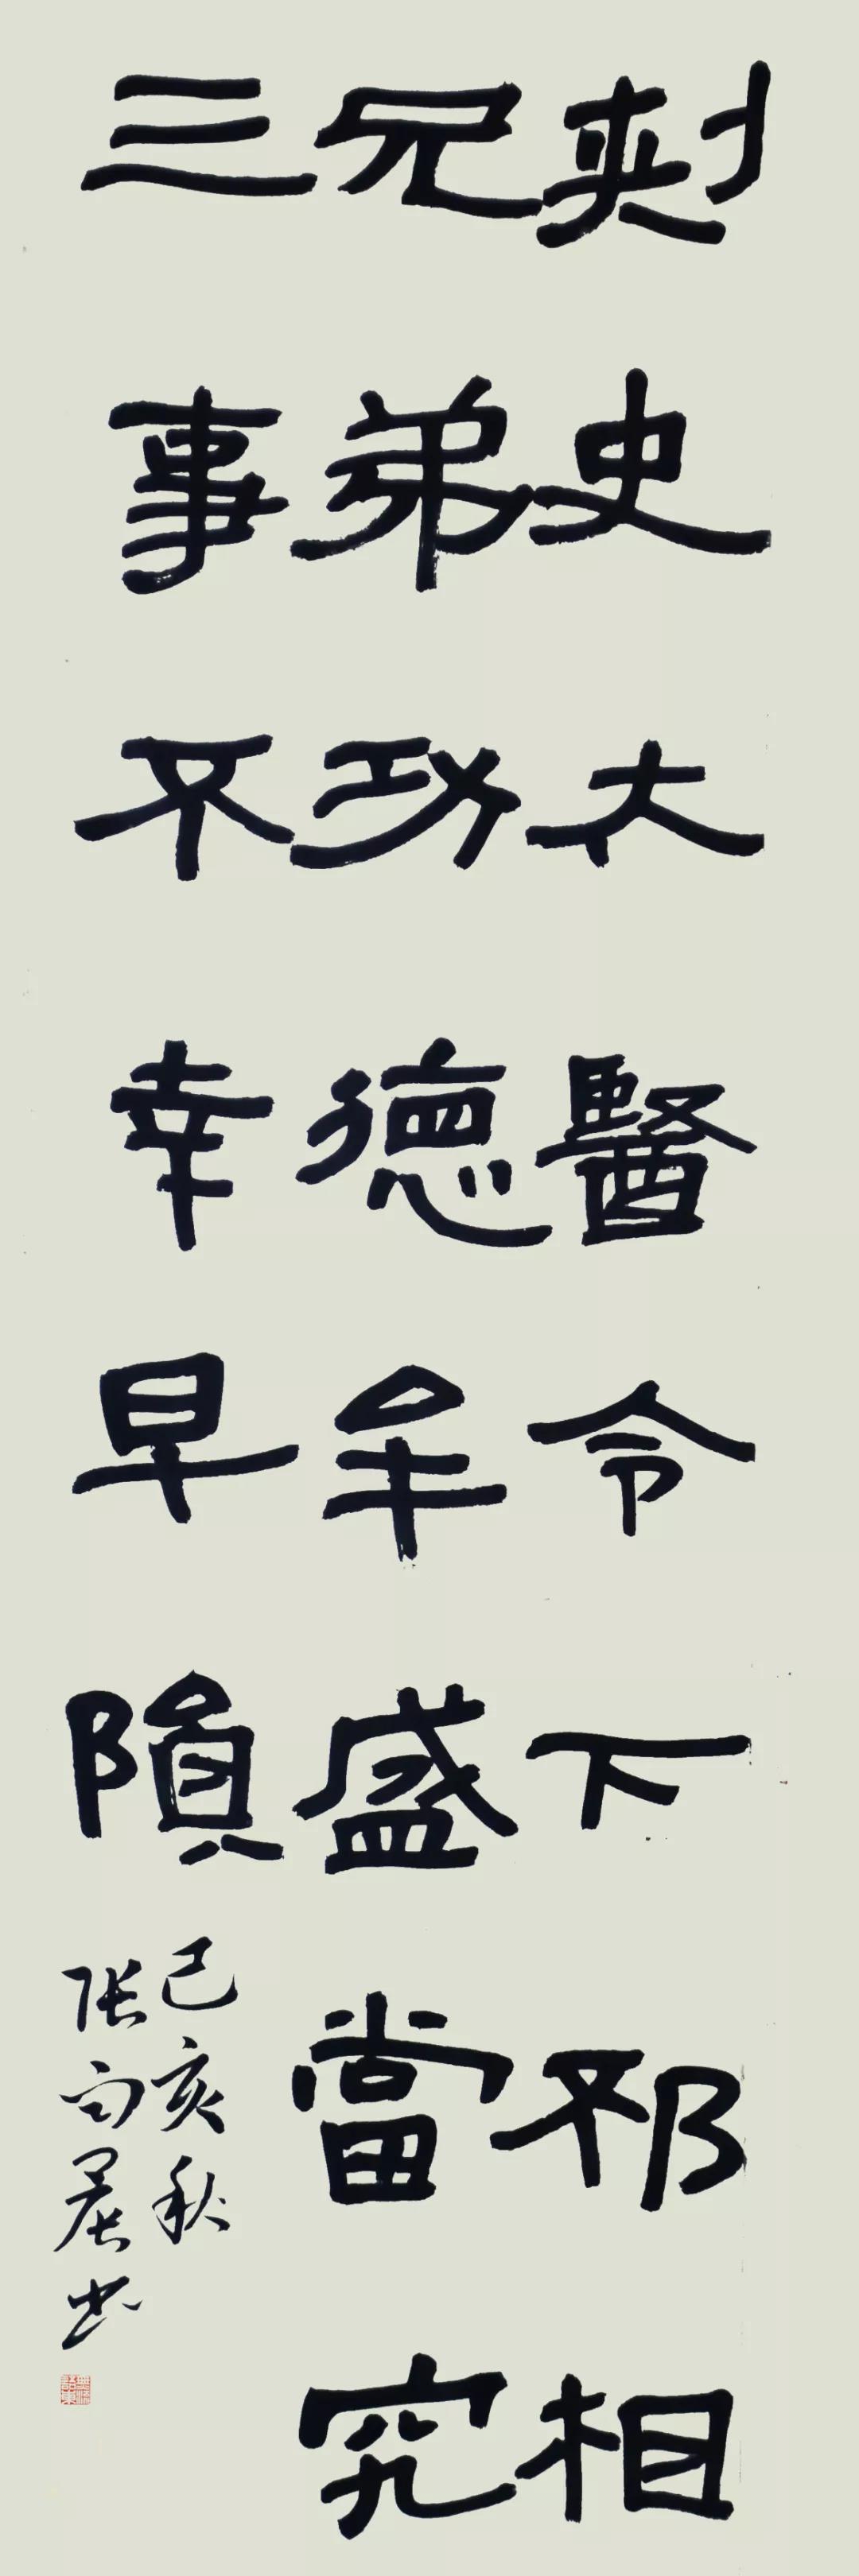 刺史大醫令下邳相
兄弟功德牟盛當究
三事不幸早隕
己亥秋
张向晨书